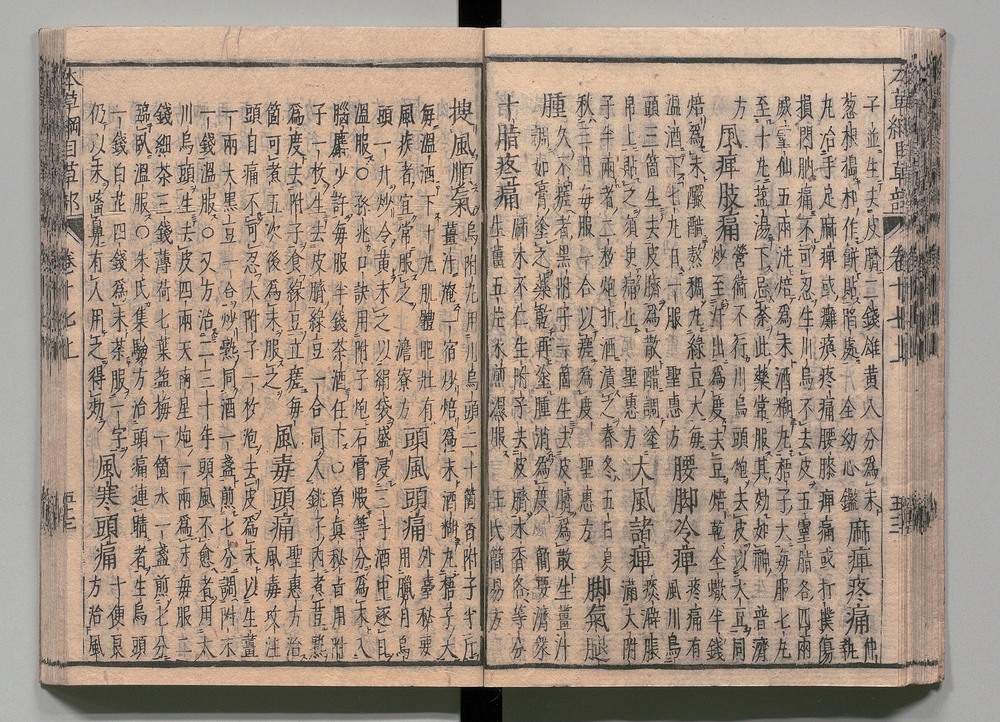 子並生去皮臍二錢雄黃八分爲末 麻痺疼痛 仙
葱根搗和作餅貼臍處 十全幼心鑑 桃
丸治手足麻痺或癱瘓疼痛腰膝痺痛或打撲傷
損閃肭痛不可忍生川烏不去皮五靈脂各四兩
威靈仙五兩洗焙爲末酒糊丸梧子大每服七丸
至十丸鹽湯下忌茶此藥常服其効如神 普濟
方 風痺肢痛 營衛不行川烏頭炮去皮以大豆同
炒至汁出爲度去豆焙乾全蠍半錢
焙爲末釅醋熬稠丸綠豆大每
溫酒下七丸日一服 聖惠方 腰脚冷痺 疼痛有
風川烏
頭三箇生去皮臍爲散醋調塗
帛上貼之須臾痛止 聖惠方 大風諸痺 痰澼脹
滿大附
子半兩者二枚炮拆酒漬之春冬五日夏
秋三日每服一合以瘥爲度 聖惠方 脚氣 腿
腫久不瘥者黑附子一箇生去皮臍爲散生薑汁
調如膏塗之藥乾再塗腫消爲度 簡要濟衆
十指疼痛 麻木不仁生附子去皮臍木香各等分
生薑五片水煎溫服 王氏簡易方
搜風順氣 烏附丸用川烏頭二十箇香附子半斤
薑汁淹一宿炒焙爲末酒糊丸梧子大
每溫酒下十丸肌體肥壯有
風疾者宜常服之 澹寮方 頭風頭痛 外臺秘要
用臘月烏
頭一升炒令黃末之以絹袋盛浸三斗酒中逐日
溫服○孫兆口訣用附子炮石膏煅等分爲末入
腦麝少許每服半錢茶酒任下○修眞秘旨用附
子一枚生去皮臍綠豆一合同入銚子內煮豆熟
爲度去附子食綠豆立瘥每
箇可煮五次後爲末服之 風毒頭痛 聖惠方治
風毒攻注
頭目痛不可忍大附子一枚炮去皮爲末以生薑
一兩大黑豆一合炒熟同酒一盞煎七分調附末
一錢溫服○又方治二三十年頭風不愈者用大
川烏頭生去皮四兩天南星炮一兩爲末每服二
錢細茶三錢薄荷七葉鹽梅一箇水一盞煎七分
臨臥溫服○朱氏集驗方治頭痛連睛者生烏頭
一錢白芷四錢爲末茶服一字
仍以末㗜鼻有人用之得効 風寒頭痛 十便良
方治風
本草綱目草部 卷十七上